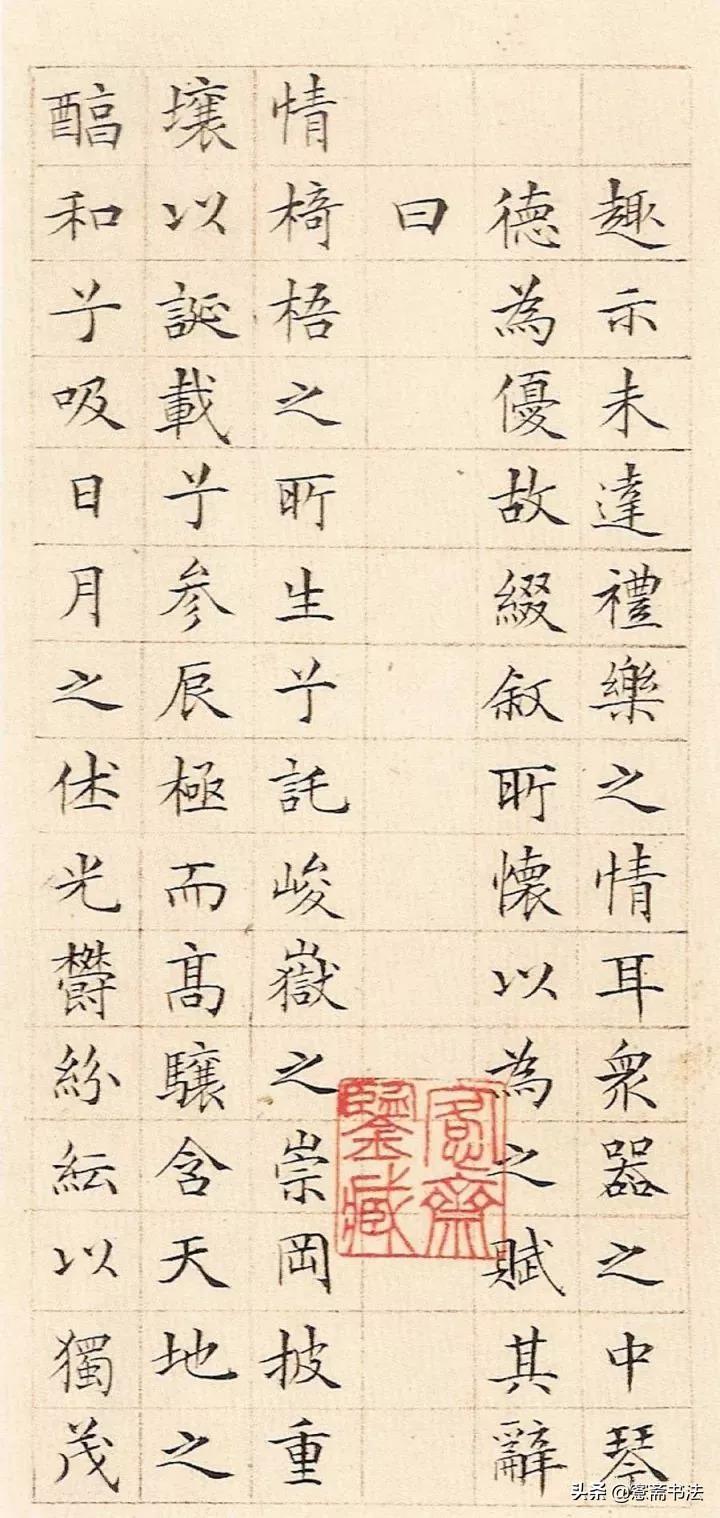 趣示未達禮樂之情耳衆器之中琴
德為優故綴叙所懷以為之賦其辭
曰
情椅梧之所生兮託峻嶽之崇岡披重
壤以誕載兮參辰極而高驤含天地之
醕和兮吸日月之休光鬱紛紜以獨茂
愙齋
鑒藏
头条@愙斋书法